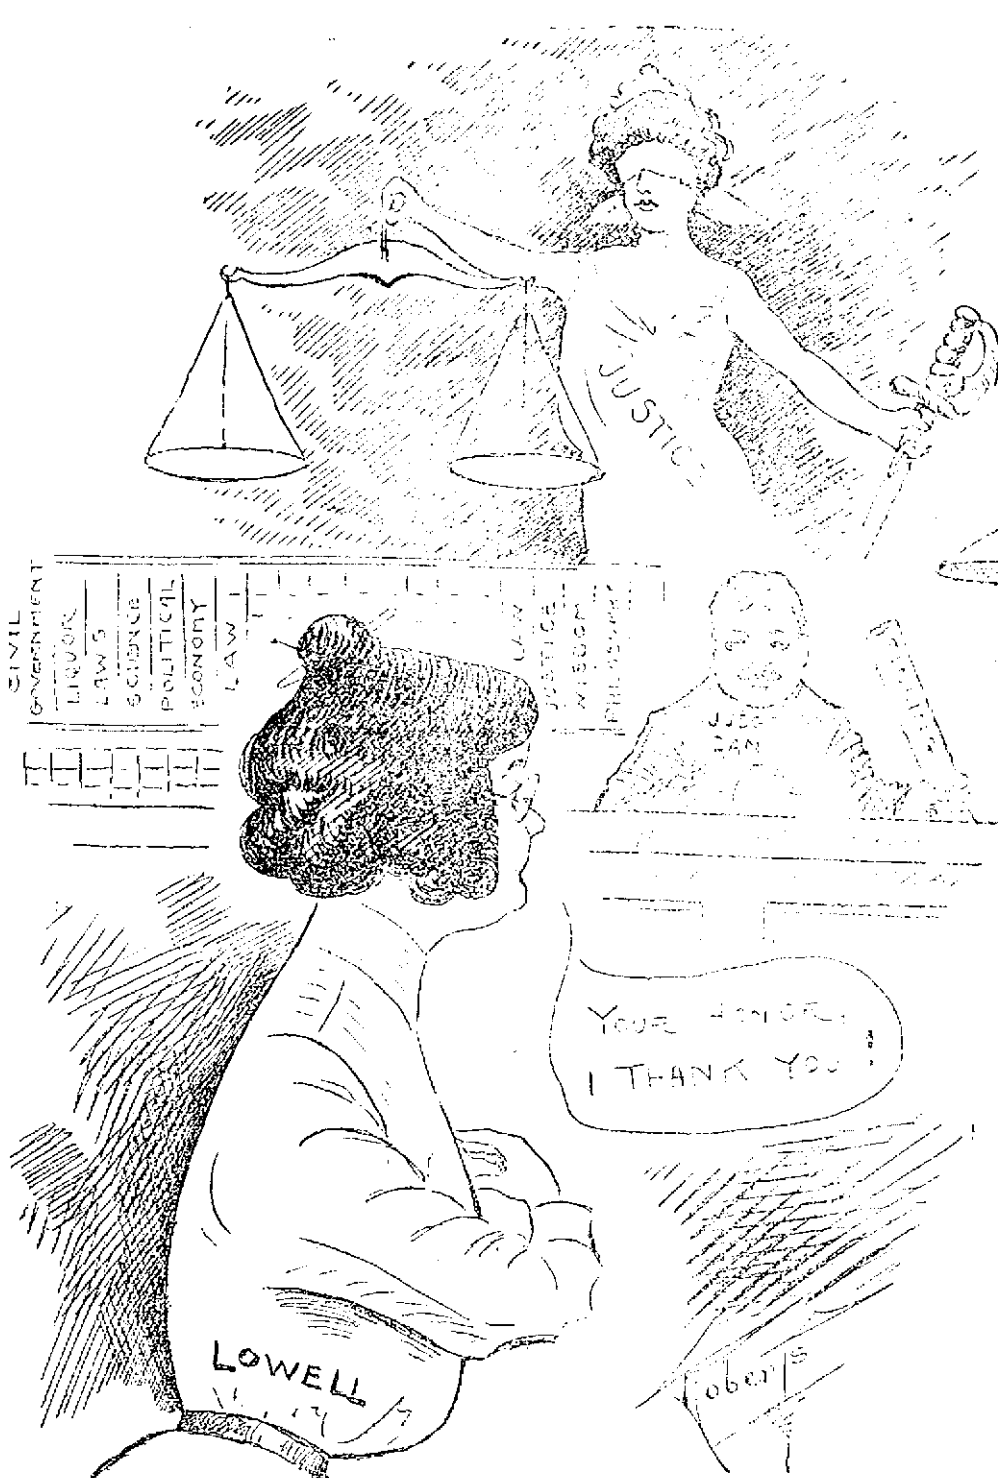 JUSTICE
CIVIL
GOVERNMENT
LIQUOR
LAWS
SCIENCE
POLITICAL
ECONOMY
LAW
LAW
JUSTICE
WISDOM
PHILOSOPHY
YOUR HONOR,
I THANK YOU!
LOWELL
Roberts